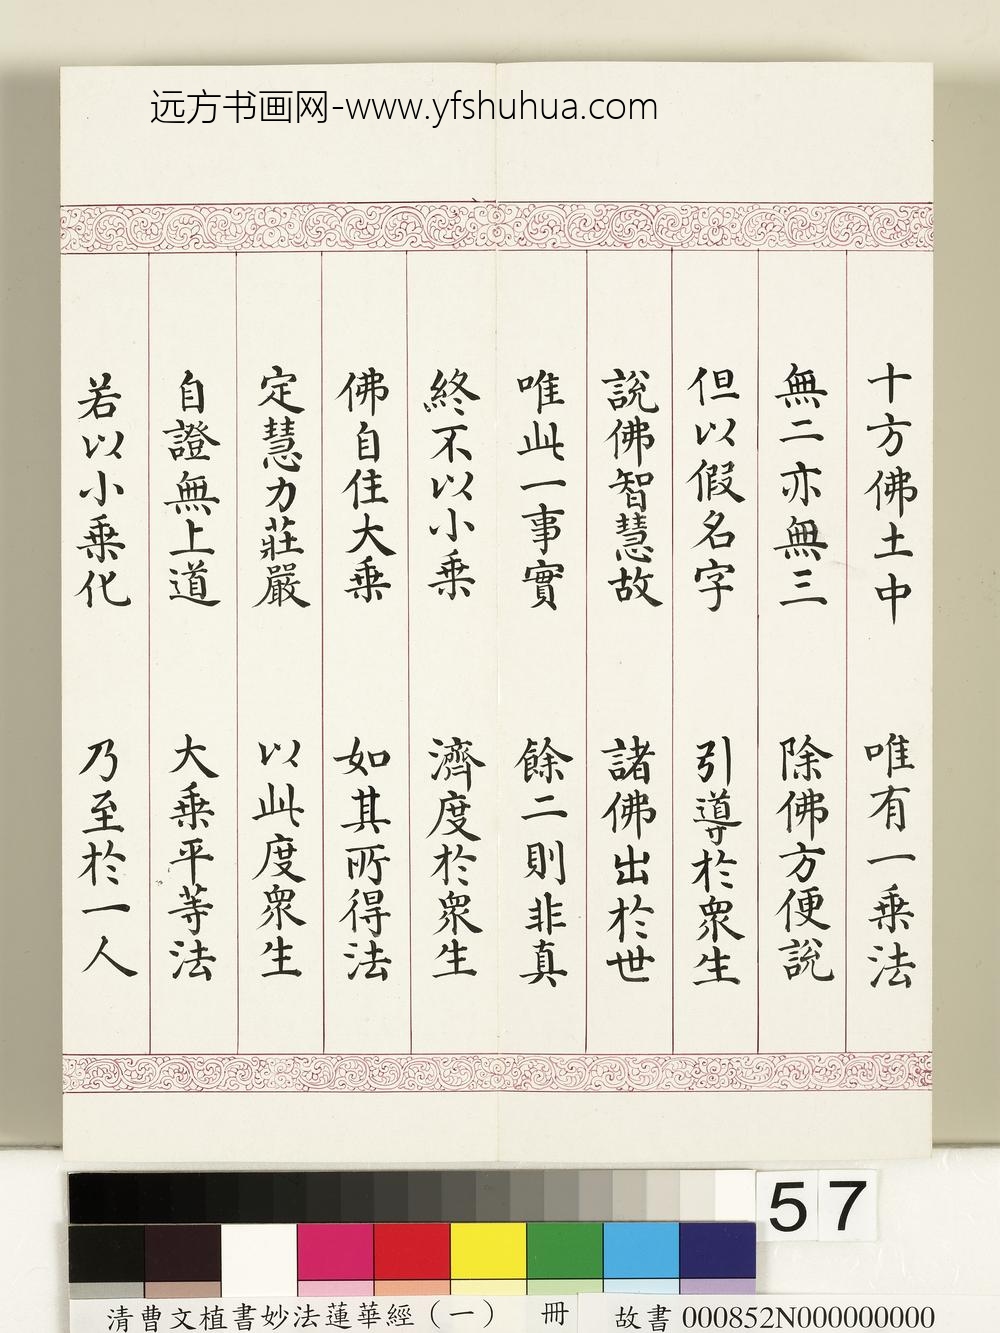 远方书画网-www.yfshuhua.com
十方佛土中 唯有一乗法
無二亦無三 除佛方便說
但以假名字 引導於眾生
說佛智慧故 諸佛出於世
唯此一事實 餘二則非真
終不以小乗 濟度於眾生
佛自住大乗 如其所得法
定慧力莊嚴 以此度眾生
自證無上道 大乗平等法
若以小乗化 乃至於一人
57
清曹文植書妙法蓮華經（一） 冊 故書000852N000000000